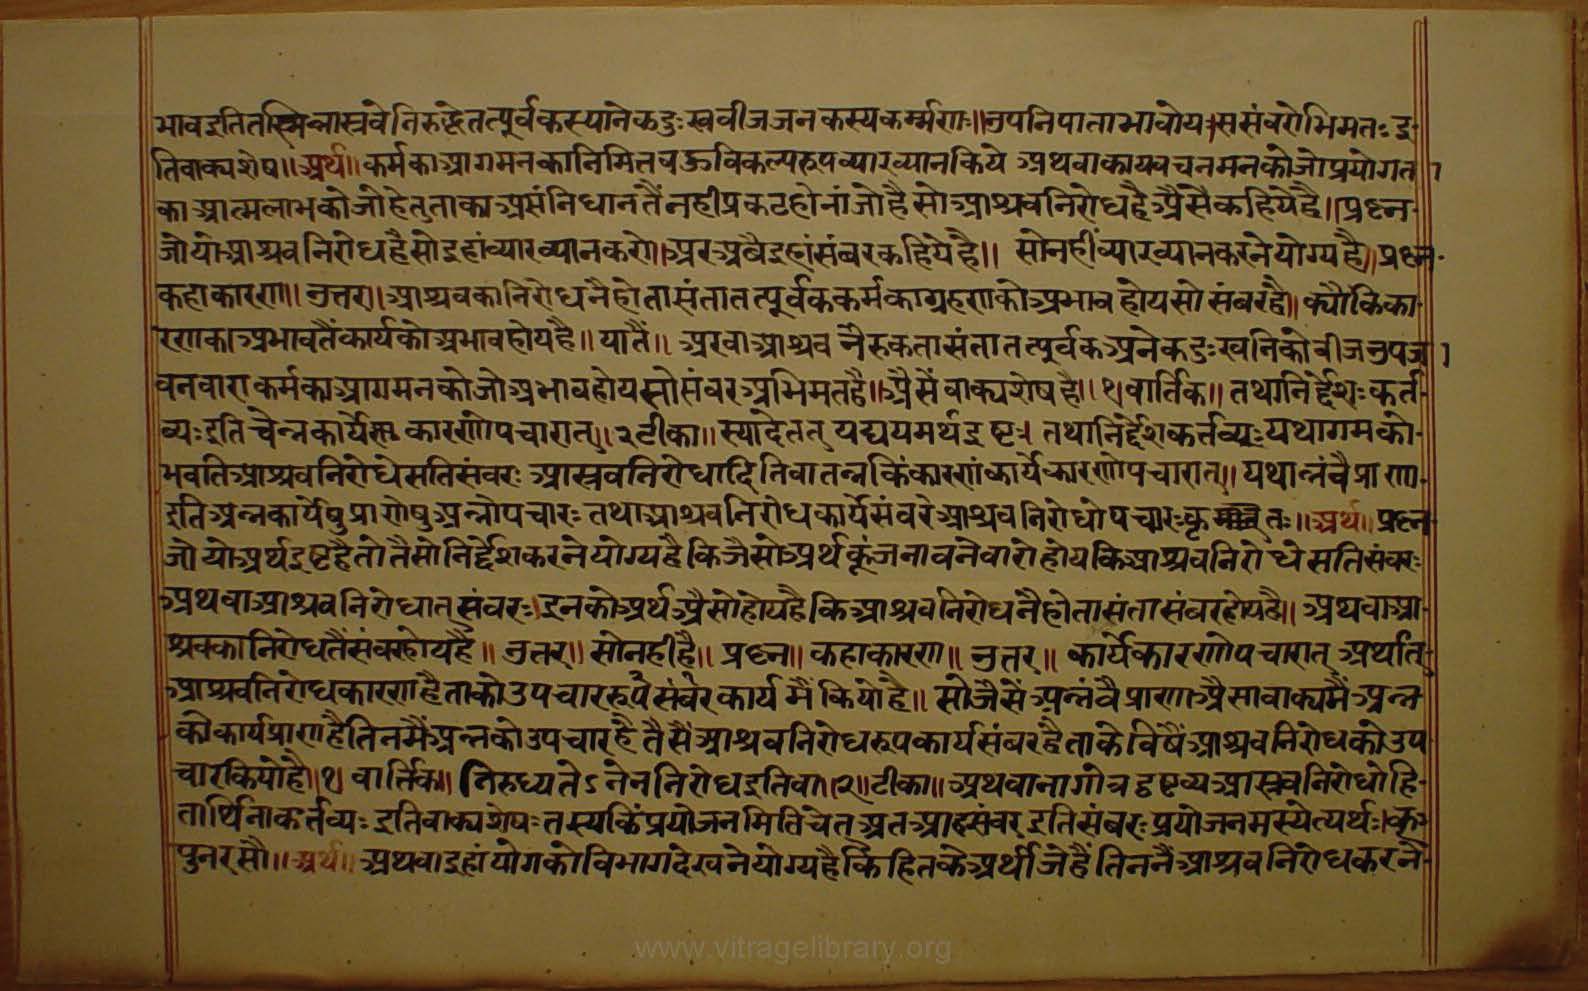 भावइतितस्मिन्नास्त्रवेनिरुद्धेतत्पूर्वकस्यानेकदुःखवीजजनकस्यकर्म्मणः॥उपनिपाताभावोयः।ससंवरोभिमतःइ-
तिवाक्यशेष॥अर्थ॥कर्मकाआगमनकानिमितवऊविकल्परुपव्याख्यानकिये अथवाकायवचनमनकोजोप्रयोगत
काआत्मलाभकोजोहेतुताकाअसंनिधानतैंनहीप्रकटहोनांजोहैसोआश्रवनिरोधहैअैसैंकहियेहै॥प्रश्न-
जोयोआश्रवनिरोधहैसोइहांव्याख्यानकरो॥अरअबैइहांसंवरकहियेहै॥ सोनहींव्याख्यानकरनेयोग्यहै॥प्रश्न-
कहाकारण॥उत्तर॥आश्रवकानिरोधनैहोतासंतातत्पूर्वककर्मकाग्रहणकोअभावहोयसोसंवरहै॥क्यौंकिका-
रणकाअभावतैंकार्यकोअभावहोयहै॥यातैं॥अखाआश्रवनैरुकतासंतातत्पूर्वकअनेकदुःखनिकोबीजउपज
वनवाराकर्मकाआगमनकोजोअभावहोयसोसंवरअभिमतहै॥अैसेंवाक्यशेषहै॥१॥वार्तिक॥तथानिर्द्देशःकर्त-
व्यःइतिचेन्नकार्येकारणोपचारात्॥२टीका॥स्यादेतत्यद्ययमर्थइष्टः।तथानिर्द्देशकर्तव्यःयथागमको-
भवतिआश्रवनिरोधेसतिसंवरःआस्त्रवनिरोधादितिवातन्नकिंकारणंकार्येकारणोपचारात्॥यथान्नंवैप्राणा-
इतिअन्नकार्येषुप्राणेषुअन्नोपचारःतथाआश्रवनिरोधकार्येसंवरेआश्रवनिरोधोपचारःकृतः॥अर्थ॥प्रश्न
जोयोअर्थइष्टहैतोतैसोनिर्द्देशकरनेयोग्यहैकिजैसोअर्थकूंजनावनेवारोहोयकिआश्रवनिरोधेसतिसंवरः
अथवाआश्रवनिरोधात्संवरः॥इनकोअर्थअैसोहोयहैकिआश्रवनिरोधनैहोतासंतासंवरहोयहै॥अथवाआ-
श्रवकानिरोधतैंसंवरहोयहै॥उतर॥सोनहीहै॥प्रश्न॥कहाकारण॥उतर॥कार्येकारणोपचारात्अर्थात्
आश्रवनिरोधकारणहैताकोउपचाररुपसंवरकार्यमैंकियोहै॥सोजैसेंअन्नंवैप्राणाअैसावाक्यमैंअन्न
कोकार्यप्राणहैतिनमैंअन्नकोउपचारहैतैसैंआश्रवनिरोधरुपकार्यसंवरहैताकेविषैंआश्रवनिरोधकोउप
चारकियोहै॥१॥वार्तिक॥निरुध्यतेऽनेननिरोधइतिवा॥२॥टीका॥अथवानागोत्रदृष्टव्यआस्त्रवनिरोधोहि-
तार्थिनाकर्तव्यःइतिवाक्यशेषःतस्यकिंप्रयोजनमितिचेतअतआहसंवरइतिसंवरःप्रयोजनमस्येत्यर्थः।कः
पुनरसौ॥अर्थ॥अथवाइहांयोगकोविभागदेखनेयोग्यहैकिहितकेअर्थीजेहैंतिननैंआश्रवनिरोधकरने
www.vitragelibrary.org